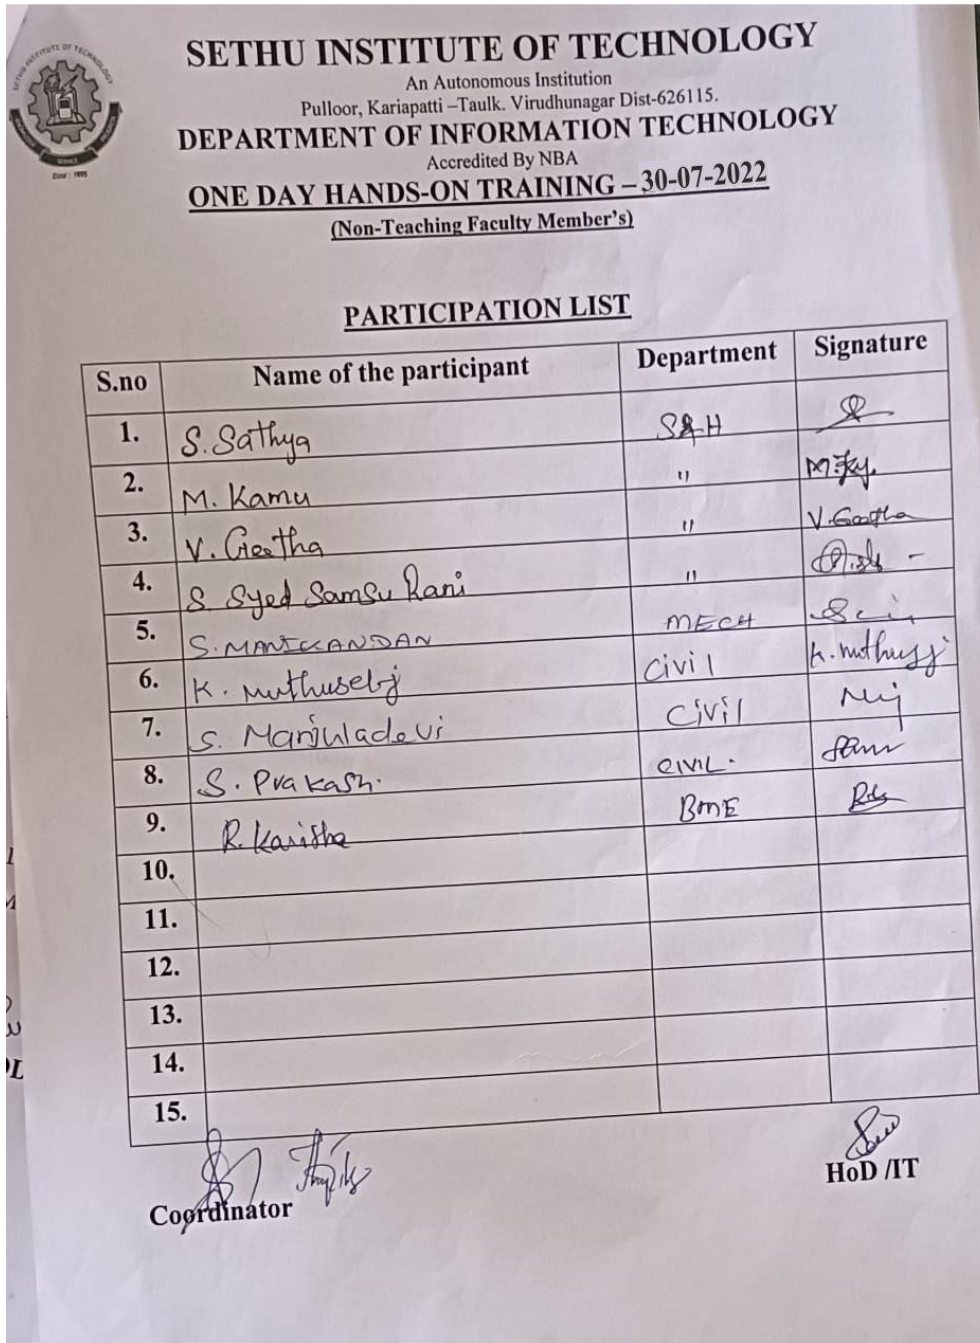 SETHU INSTITUTE OF TECHNOLOGY
An Autonomous Institution
Pulloor, Kariapatti –Taulk. Virudhunagar Dist-626115.
DEPARTMENT OF INFORMATION TECHNOLOGY
Accredited By NBA
ONE DAY HANDS-ON TRAINING – 30-07-2022
(Non-Teaching Faculty Member's)
SETHU INSTITUTE OF TECHNOLOGY
SERVICE
Estd : 1995
PARTICIPATION LIST
S.no Name of the participant Department Signature
1. S. Sathya S&H
2. M. Kamu "
3. V. Geetha " V. Geetha
4. S. Syed Samsu Rani "
5. S. MANIKANDAN MECH
6. K. Muthuselvj Civil
7. S. Manjuladevi Civil
8. S. Prakash. CIVIL.
9. R. Kanisha BME
10.
11.
12.
13.
14.
15.
Coordinator HoD /IT